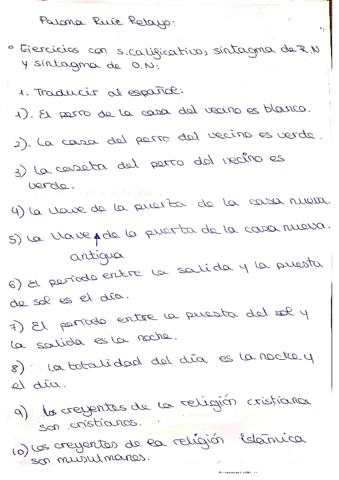 Paloma Ruiz Pelayo:
° Ejercicios con s.calificativo, sintagma de R.N
y sintagma de O.N:
1. Traducir al español:
1). El perro de la casa del vecino es blanco.
2). La casa del perro del vecino es verde.
3) La caseta del perro del vecino es
verde.
4) La llave de la puerta de la casa nueva.
5) La llave de la puerta de la casa nueva.
antigua
6) El periodo entre la salida y la puesta
de sol es el día.
7) El periodo entre la puesta del sol y
la salida es la noche.
8) La totalidad del día es la noche y
el día.
9) los creyentes de la religión cristiana
son cristianos.
10) Los creyentes de la religión islámica
son musulmanes.